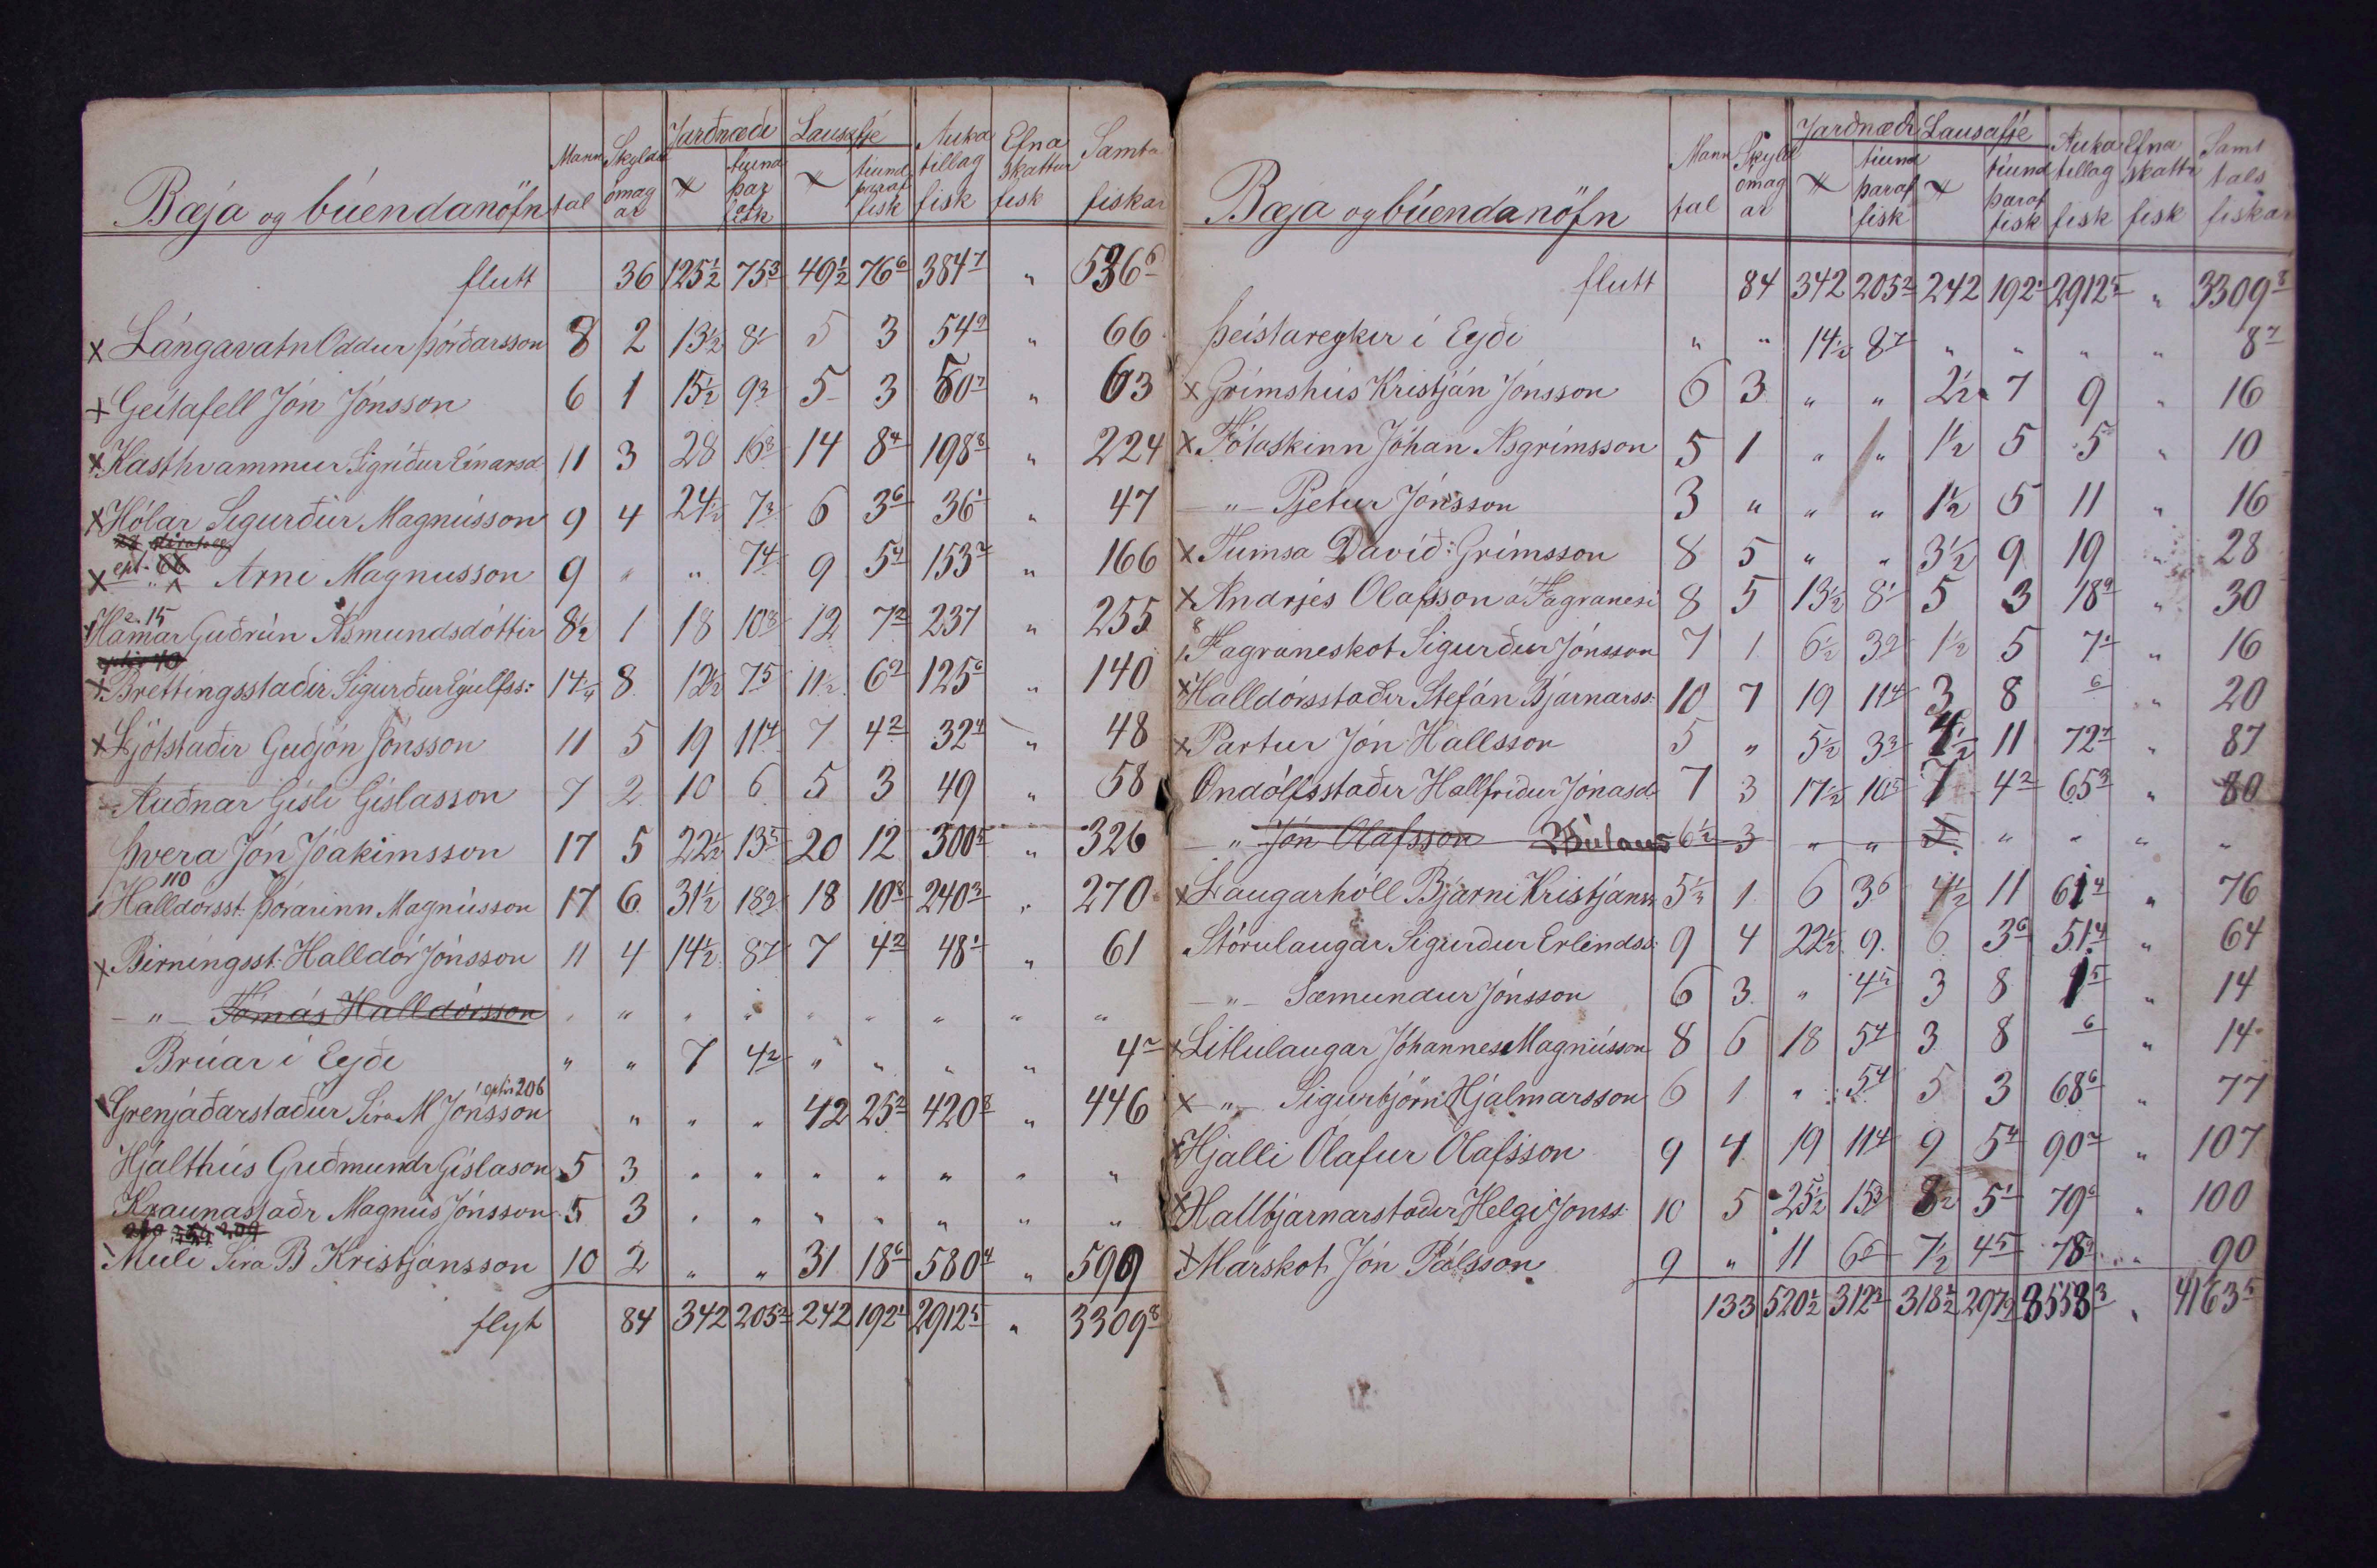 Bæja og búendanöfn Mann tal Skyldu ómag ar Jarðnæði tiund þar af fisk Lausafje tiund þaraf fisk Auka tillag fisk Efna skattur fisk Samta fiskar
flutt 36 125½ 75 3 49½ 76 6 384 7 „ 536 6
x Lángavatn Oddur Þórðarsson 8 2 13½ 8 1 5 3 54 9 „ 66
x Geitafell Jón Jónsson 6 1 15½ 9 3 5 3 50 7 „ 63
x Kasthvammur Sigríður Einarsd 11 3 28 16 8 14 8 4 198 8 „ 224
x Hólar Sigurður Magnússon 9 4 24½ 7 3 6 3 6 36 1 „ 47
x ept. 66 „ Arni Magnusson 9 „ „ 7 4 9 5 4 153 2 „ 166
e. 15
Hamar Guðrún Asmundsdóttir 8½ 1 18 10 8 12 7 2 237 „ 255
eptir 40
x Brettingsstaðir Sigurður Eyulfss: 14½ 8 12½ 7 5 11½ 6 9 125 6 „ 140
x Ljótstaðir Guðjón Jónsson 11 5 19 11 4 7 4 2 32 4 „ 48
Auðnar Gísli Gíslasson 7 2 10 6 5 3 49 „ 58
Þvera Jón Jóakimsson 17 5 22½ 13 5 20 12 300 5 „ 326
110
Halldórsst. Þórarinn Magnússon 17 6 31½ 18 9 18 10 8 240 3 „ 270
x Birningsst: Halldór Jónsson 11 4 14½ 8 7 7 4 2 48 1 „ 61
„ Tómás Halldórsson „ „ „ „ „ „ „ „ „
Brúar í Eyði „ „ 7 4 2 „ „ „ „ 4 2
eptir 206
Grenjáðarstaður Síra M Jónsson „ „ „ 42 25 2 420 8 „ 446
Hjálthús Guðmundr Gíslason 5 3 „ „ „ „ „ „ „
Kraunastaðr Magnús Jónsson 5 3 „ „ „ „ „ „ „
Múli Síra B Kristjánsson 10 2 „ „ 31 18 6 580 4 „ 599
flyt 84 342 205 2 242 192 1 2912 5 „ 3309 8
Bæja og búenda nöfn Mann tal Skyld ómag ar Jarðnæði tiund þaraf fisk Lausafje tiund þaraf fisk Auka tillag fisk Efna skattr fisk Samt tals fiskar
flutt 84 342 205 2 242 192 1 2912 5 „ 3309 8
Þeistareykir í Eyði „ „ 14½ 8 7 „ „ „ „ 8 7
x Grímshús Kristján Jónsson 6 3 „ „ 2½ 7 9 „ 16
x Fótaskinn Jóhan Asgrímsson 5 1 „ „ 1½ 5 5 „ 10
„ Pjetur Jónsson 3 „ „ „ 1½ 5 11 „ 16
x Tumsa Davíð: Grímsson 8 5 „ „ 3½ 9 19 „ 28
x Andrjés Olafsson á Fagranesi 8 5 13½ 8 1 5 3 18 9 „ 30
8
Fagraneskot Sigurður Jónsson 7 1 6½ 3 9 1½ 5 7 1 „ 16
x Halldórsstaðir Stefán Bjarnarss: 10 7 19 11 4 3 8 6 „ 20
x Partur Jón Hallsson 5 „ 5½ 3 3 4½ 11 72 7 „ 87
Ondólfsstaðir Hallfríður Jónasd 7 3 17½ 10 5 7 4 2 65 3 „ 80
„ Jón Olafsson Búlaus 6½ 3 „ „ „ „ „ „
x Laugarhóll Bjarni Kristjáns 5½ 1 6 3 6 4½ 11 61 4 „ 76
Stórulaugar Sigurður Erlendss: 9 4 22½ 9 6 3 6 51 4 „ 64
„ Sæmundur Jónsson 6 3 „ 4 5 3 8 1 5 „ 14
x Litlulaugar Jóhannes Magnússon 8 6 18 5 4 3 8 6 „ 14
x „ Sigurbjörn Hjálmarsson 6 1 „ 5 4 5 3 68 6 „ 77
x Hjalli Olafur Olafsson 9 4 19 11 4 9 5 4 90 2 „ 107
x Hallbjarnarstaðir Helgi Jónss: 10 5 25½ 15 3 8½ 5 1 79 6 „ 100
x Márskot Jón Pálsson 9 „ 11 6 6 7½ 4 5 78 9 „ 90
133 520½ 312 2 318½ 297 9 3558 3 „ 4163 5